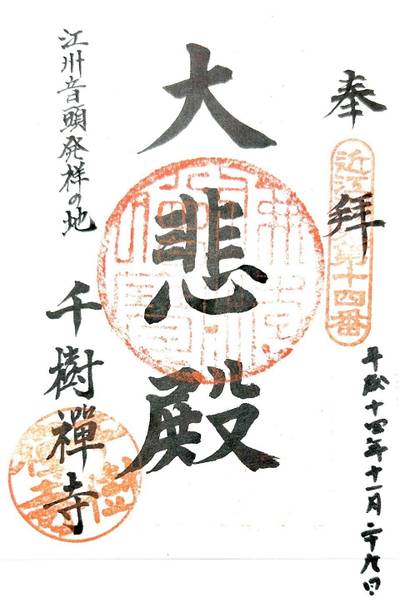 奉拝
近江
第十四番
平成十四年十一月二十九日
大悲殿
江州音頭発祥の地
千樹禅寺